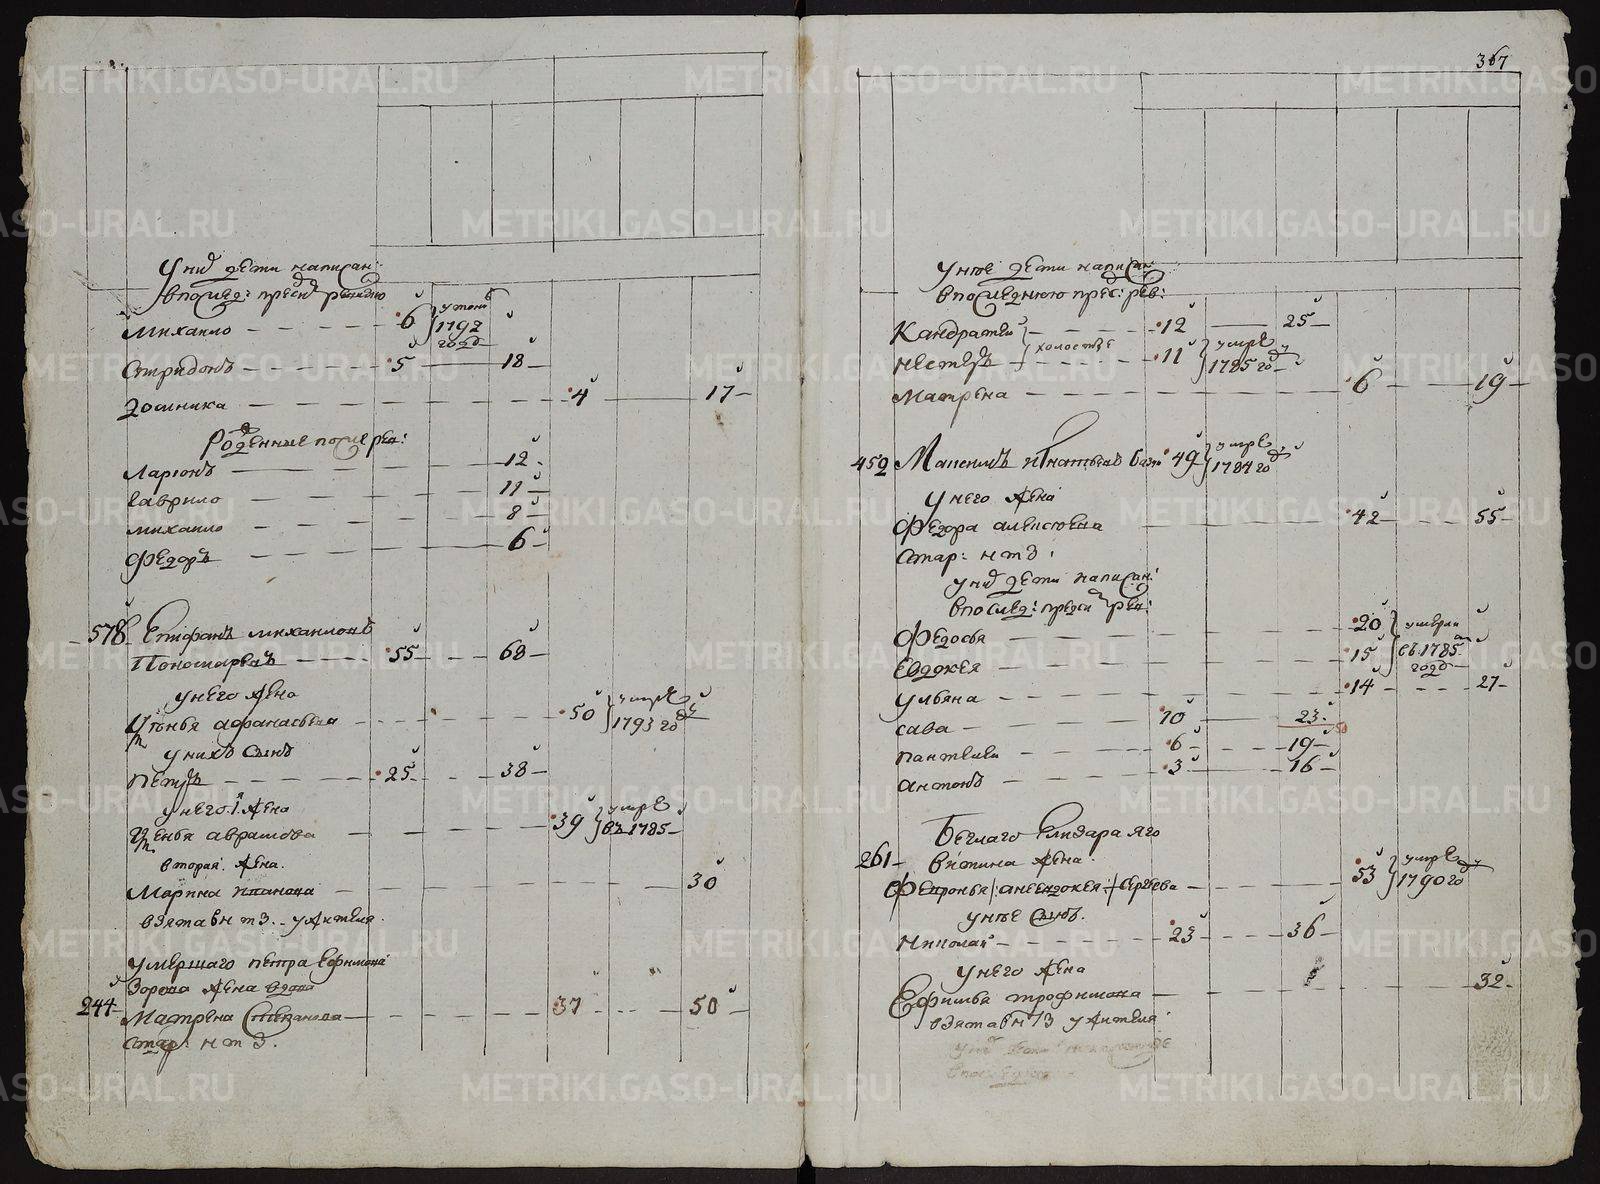 у них дети написан:
в послед: пред ревизию
Михайло 6 утонъ
1792
году
Спиридонъ 5 18
Домника 4 17
Рожденные после рев:
Ларионъ 12
Гаврило 11
Михайло 8
Федоръ 6
578 Епифанъ Михайловъ
Пономаревъ 55 68
у него жена
Устинья Афанасьева 50 умре
1793 году
у нихъ сынъ
Петръ 25 38
у него 1я жена
Ксенья Аврамова 39 умре
въ 1785
вторая жена.
Марина Иванова 30
взята в н т з. у жителя.
умершаго Петра Ефимова
жена вдова
244 Матрена Степанова 37 50
стар: н т д.
367
у нее дети написан:
в последнюю пред: рев:
Кандратей 12 25
холостые
Нестеръ 11 умре
1785 го
Матрена 6 19
452 Максимъ Игнатьевъ 49 умре
1784 го
у него жена
Федора Алексеева 42 55
стар: н т д.
у них дети написан:
в послед: пред рев:
Федосья 20 умерли
Евдокея 15 въ 1785
году
Ульяна 14 27
Сава 10 23
50
Пантелей 6 19
Антонъ 3 16
Беглаго
261 жена.
Февронья 53 умре
1790 го
у нее сынъ.
Николай 23 36
у него жена
Ефимья Трофимова 32
взята в н т з у жителя